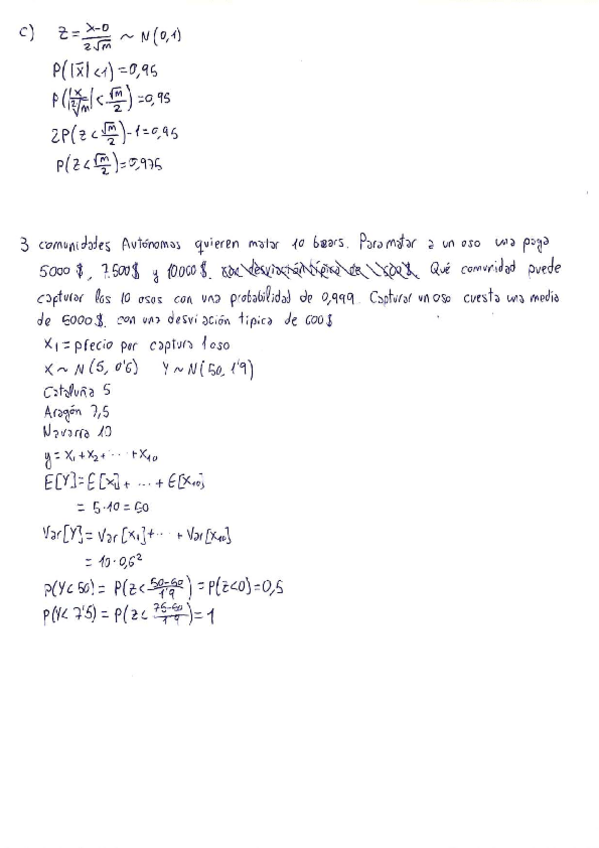 c) Z = x-0 / 2√m ~ N(0,1)
P(|x̄| < 1) = 0,95
P(|x / 2/√m| < √m/2) = 0,95
2P(Z < √m/2) - 1 = 0,95
P(Z < √m/2) = 0,975
3 comunidades Autónomas quieren matar 10 bears. Para matar a un oso una paga
5000 $, 7.500 $ y 10000 $. Qué comunidad puede
capturar los 10 osos con una probabilidad de 0,999. Capturar un oso cuesta una media
de 5000 $. con una desviación típica de 600 $
X₁ = precio por captura 1 oso
X ~ N(5, 0'6) Y ~ N(50, 1'9)
Cataluña 5
Aragón 7,5
Navarra 10
y = x₁ + x₂ + ··· + x₁₀
E[Y] = E[x₁] + ... + E[x₁₀]
= 5·10 = 50
Var[Y] = Var[x₁] + ··· + Var[x₁₀]
= 10·0,6²
P(Y < 50) = P(Z < 50-50 / 1'9) = P(Z < 0) = 0,5
P(Y < 7'5) = P(Z < 75-50 / 1'9) = 1